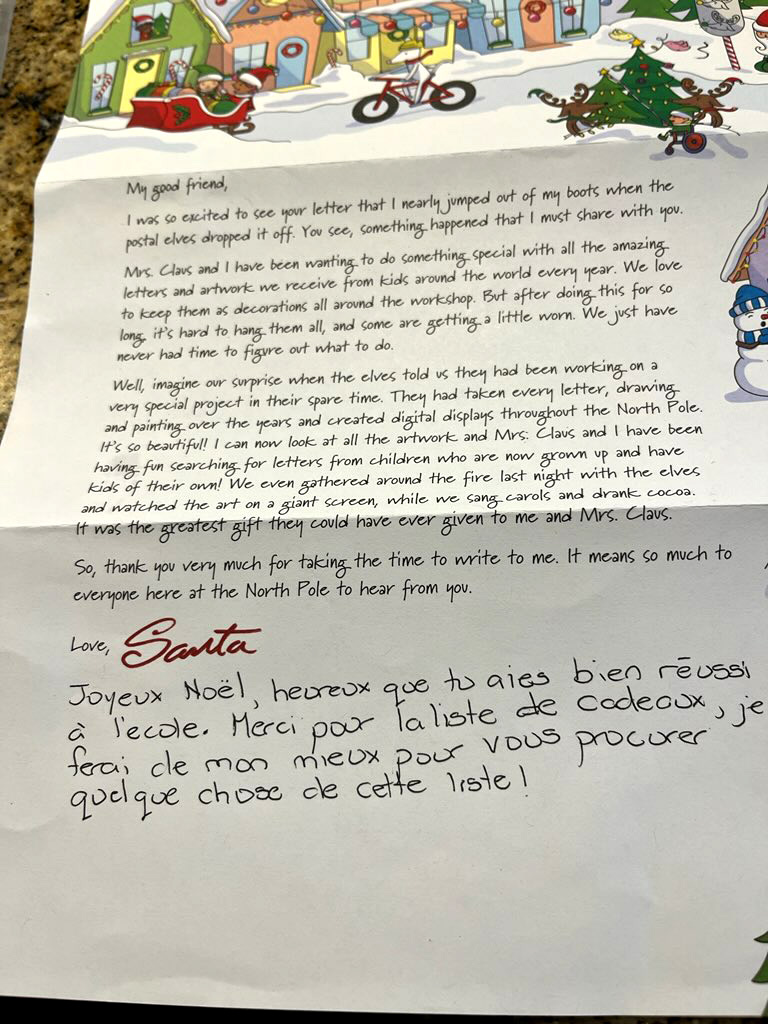 My good friend,
I was so excited to see your letter that I nearly jumped out of my boots when the
postal elves dropped it off. You see, something happened that I must share with you.
Mrs. Claus and I have been wanting to do something special with all the amazing
letters and artwork we receive from kids around the world every year. We love
to keep them as decorations all around the workshop. But after doing this for so
long, it's hard to hang them all, and some are getting a little worn. We just have
never had time to figure out what to do.
Well, imagine our surprise when the elves told us they had been working on a
very special project in their spare time. They had taken every letter, drawing
and painting over the years and created digital displays throughout the North Pole.
It's so beautiful! I can now look at all the artwork and Mrs. Claus and I have been
having fun searching for letters from children who are now grown up and have
kids of their own! We even gathered around the fire last night with the elves
and watched the art on a giant screen, while we sang carols and drank cocoa.
It was the greatest gift they could have ever given to me and Mrs. Claus.
So, thank you very much for taking the time to write to me. It means so much to
everyone here at the North Pole to hear from you.
Love, Santa
Joyeux Noël, heureux que tu aies bien réussi
à l'ecole. Merci pour la liste de cadeaux, je
ferai de mon mieux pour vous procurer
quelque chose de cette liste!